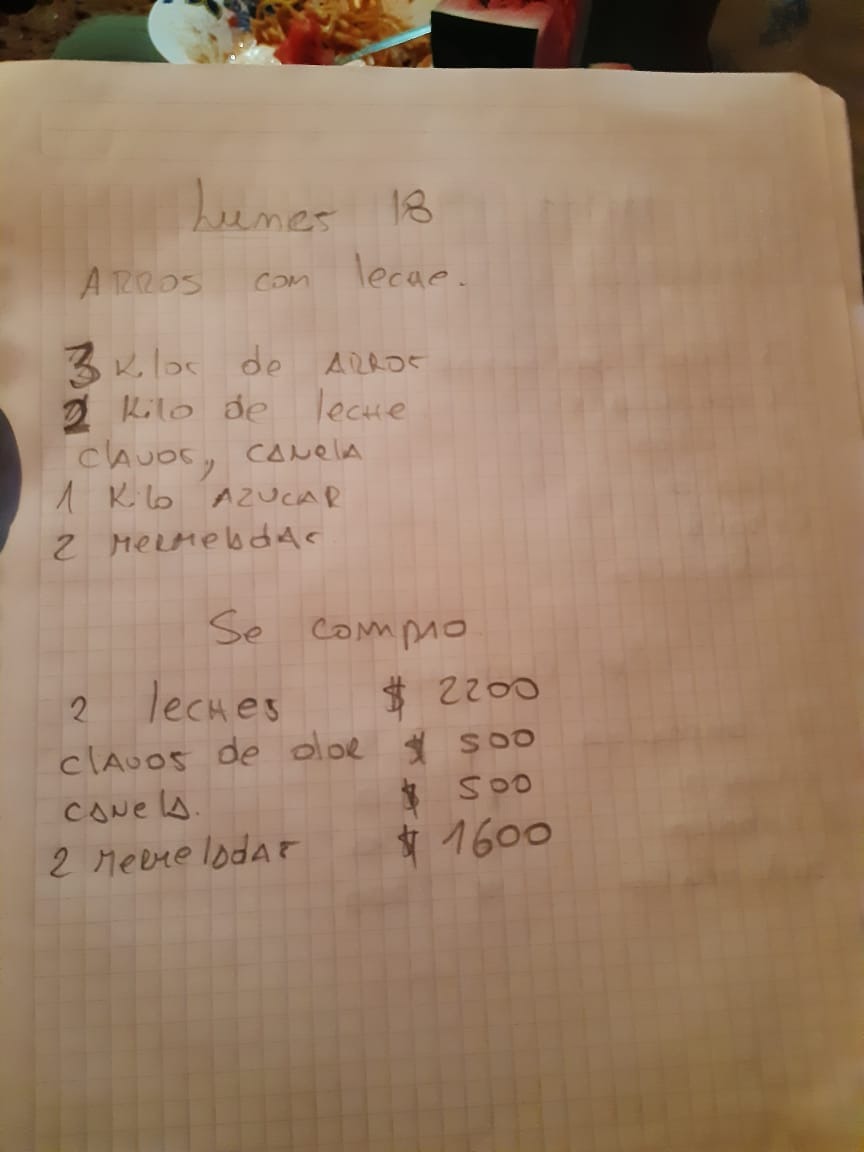 Lunes 18
ARROS con leche.
3 Kilos de ARROS
Kilo de leche
clavos, canela
1 Kilo AZUCAR
2 mermeladas
Se compro
2 leches $ 2200
clavos de olor $ 500
canela. $ 500
2 mermeladas $ 1600